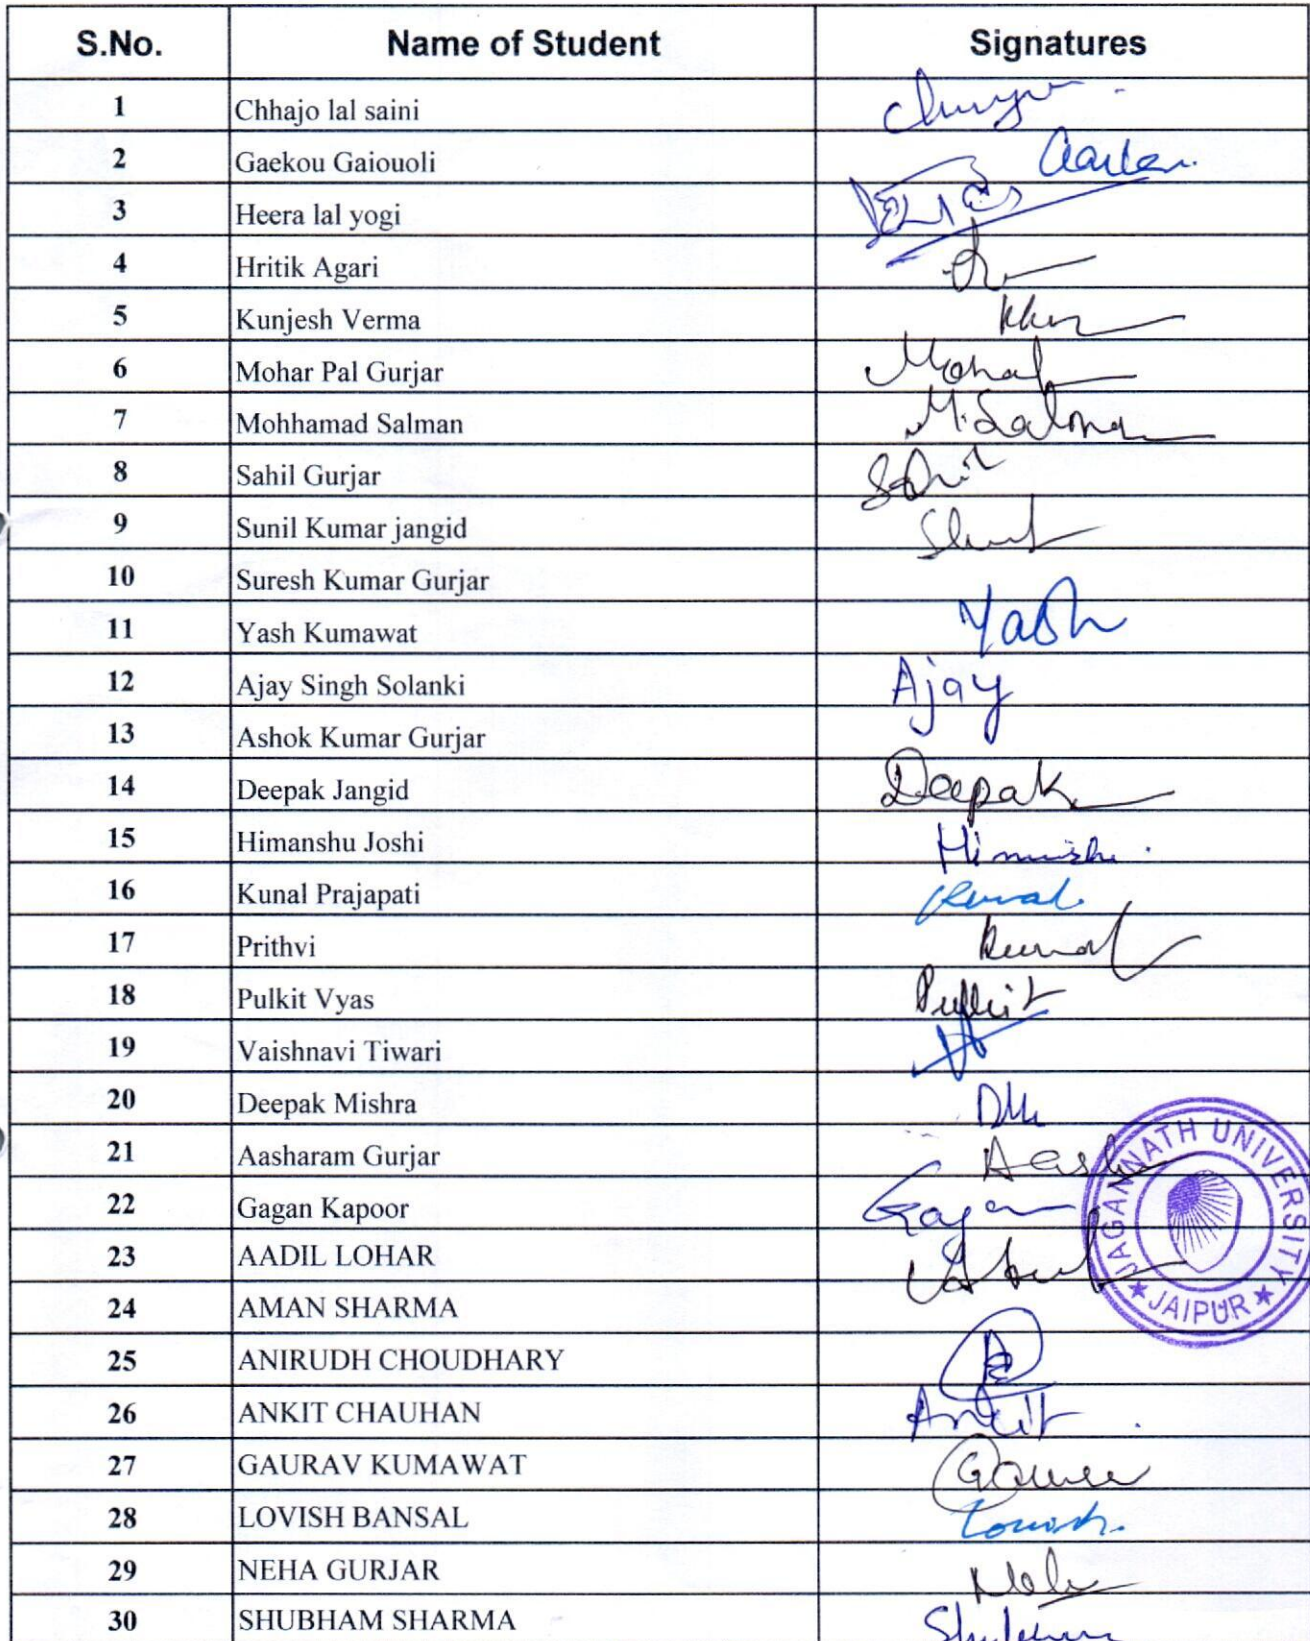 S.No. Name of Student Signatures
1 Chhajo lal saini
2 Gaekou Gaiouoli
3 Heera lal yogi
4 Hritik Agari
5 Kunjesh Verma
6 Mohar Pal Gurjar
7 Mohhamad Salman M.Salman
8 Sahil Gurjar Sahil
9 Sunil Kumar jangid
10 Suresh Kumar Gurjar
11 Yash Kumawat Yash
12 Ajay Singh Solanki Ajay
13 Ashok Kumar Gurjar
14 Deepak Jangid Deepak
15 Himanshu Joshi
16 Kunal Prajapati Kunal
17 Prithvi
18 Pulkit Vyas Pulkit
19 Vaishnavi Tiwari
20 Deepak Mishra
21 Aasharam Gurjar
22 Gagan Kapoor Gagan
23 AADIL LOHAR
24 AMAN SHARMA
25 ANIRUDH CHOUDHARY
26 ANKIT CHAUHAN Ankit
27 GAURAV KUMAWAT
28 LOVISH BANSAL Lovish
29 NEHA GURJAR Neha
30 SHUBHAM SHARMA
JAGANNATH UNIVERSITY
JAIPUR